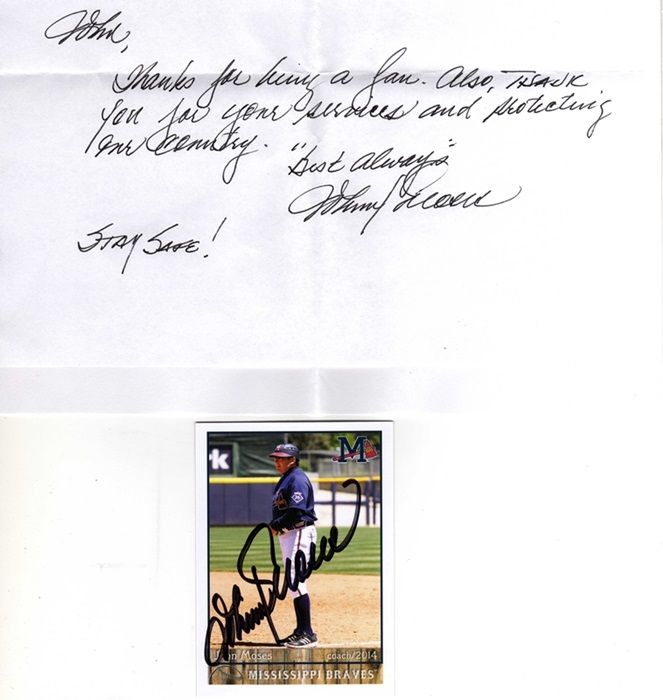 John,
Thanks for being a fan. Also, THANK
You for your services and protecting
our country.
"Best Always"
Johnny Moses
STAY SAFE!
rk
M
Johnny Moses
John Moses coach/2014
MISSISSIPPI BRAVES